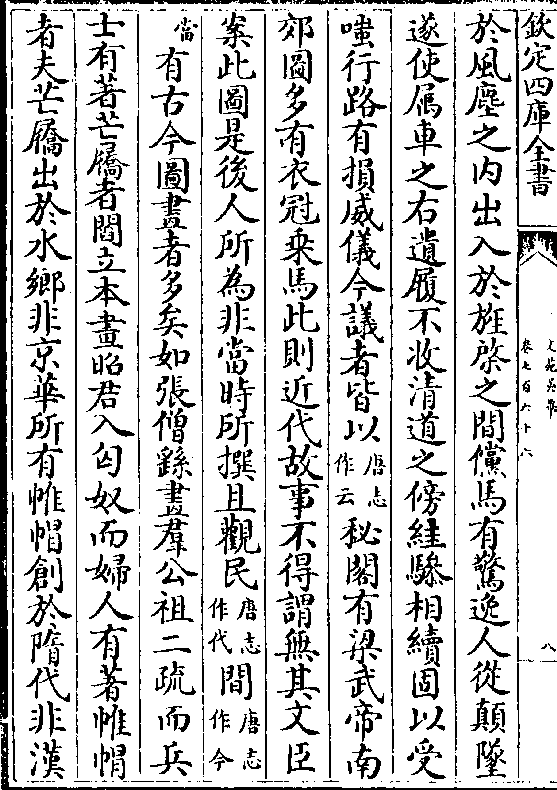 欽定四庫全書
文苑英華
卷七百六十六
八
於風塵之内出入於旌棨之間儻馬有驚逸人從顛墜
遂使屬車之右遺履不收清道之傍絓驂相續固以受
嗤行路有損威儀今議者皆以唐志作云秘閣有梁武帝南
郊圖多有衣冠乗馬此則近代故事不得謂無其文臣
案此圖是後人所為非當時所撰且觀民唐志作代間唐志作今
當有古今圖畫者多矣如張僧繇畫羣公祖二疏而兵
士有著芒屩者閻立本畫昭君入匈奴而婦人有著帷帽
者夫芒屩出於水鄉非京華所有帷帽創於隋代非漢